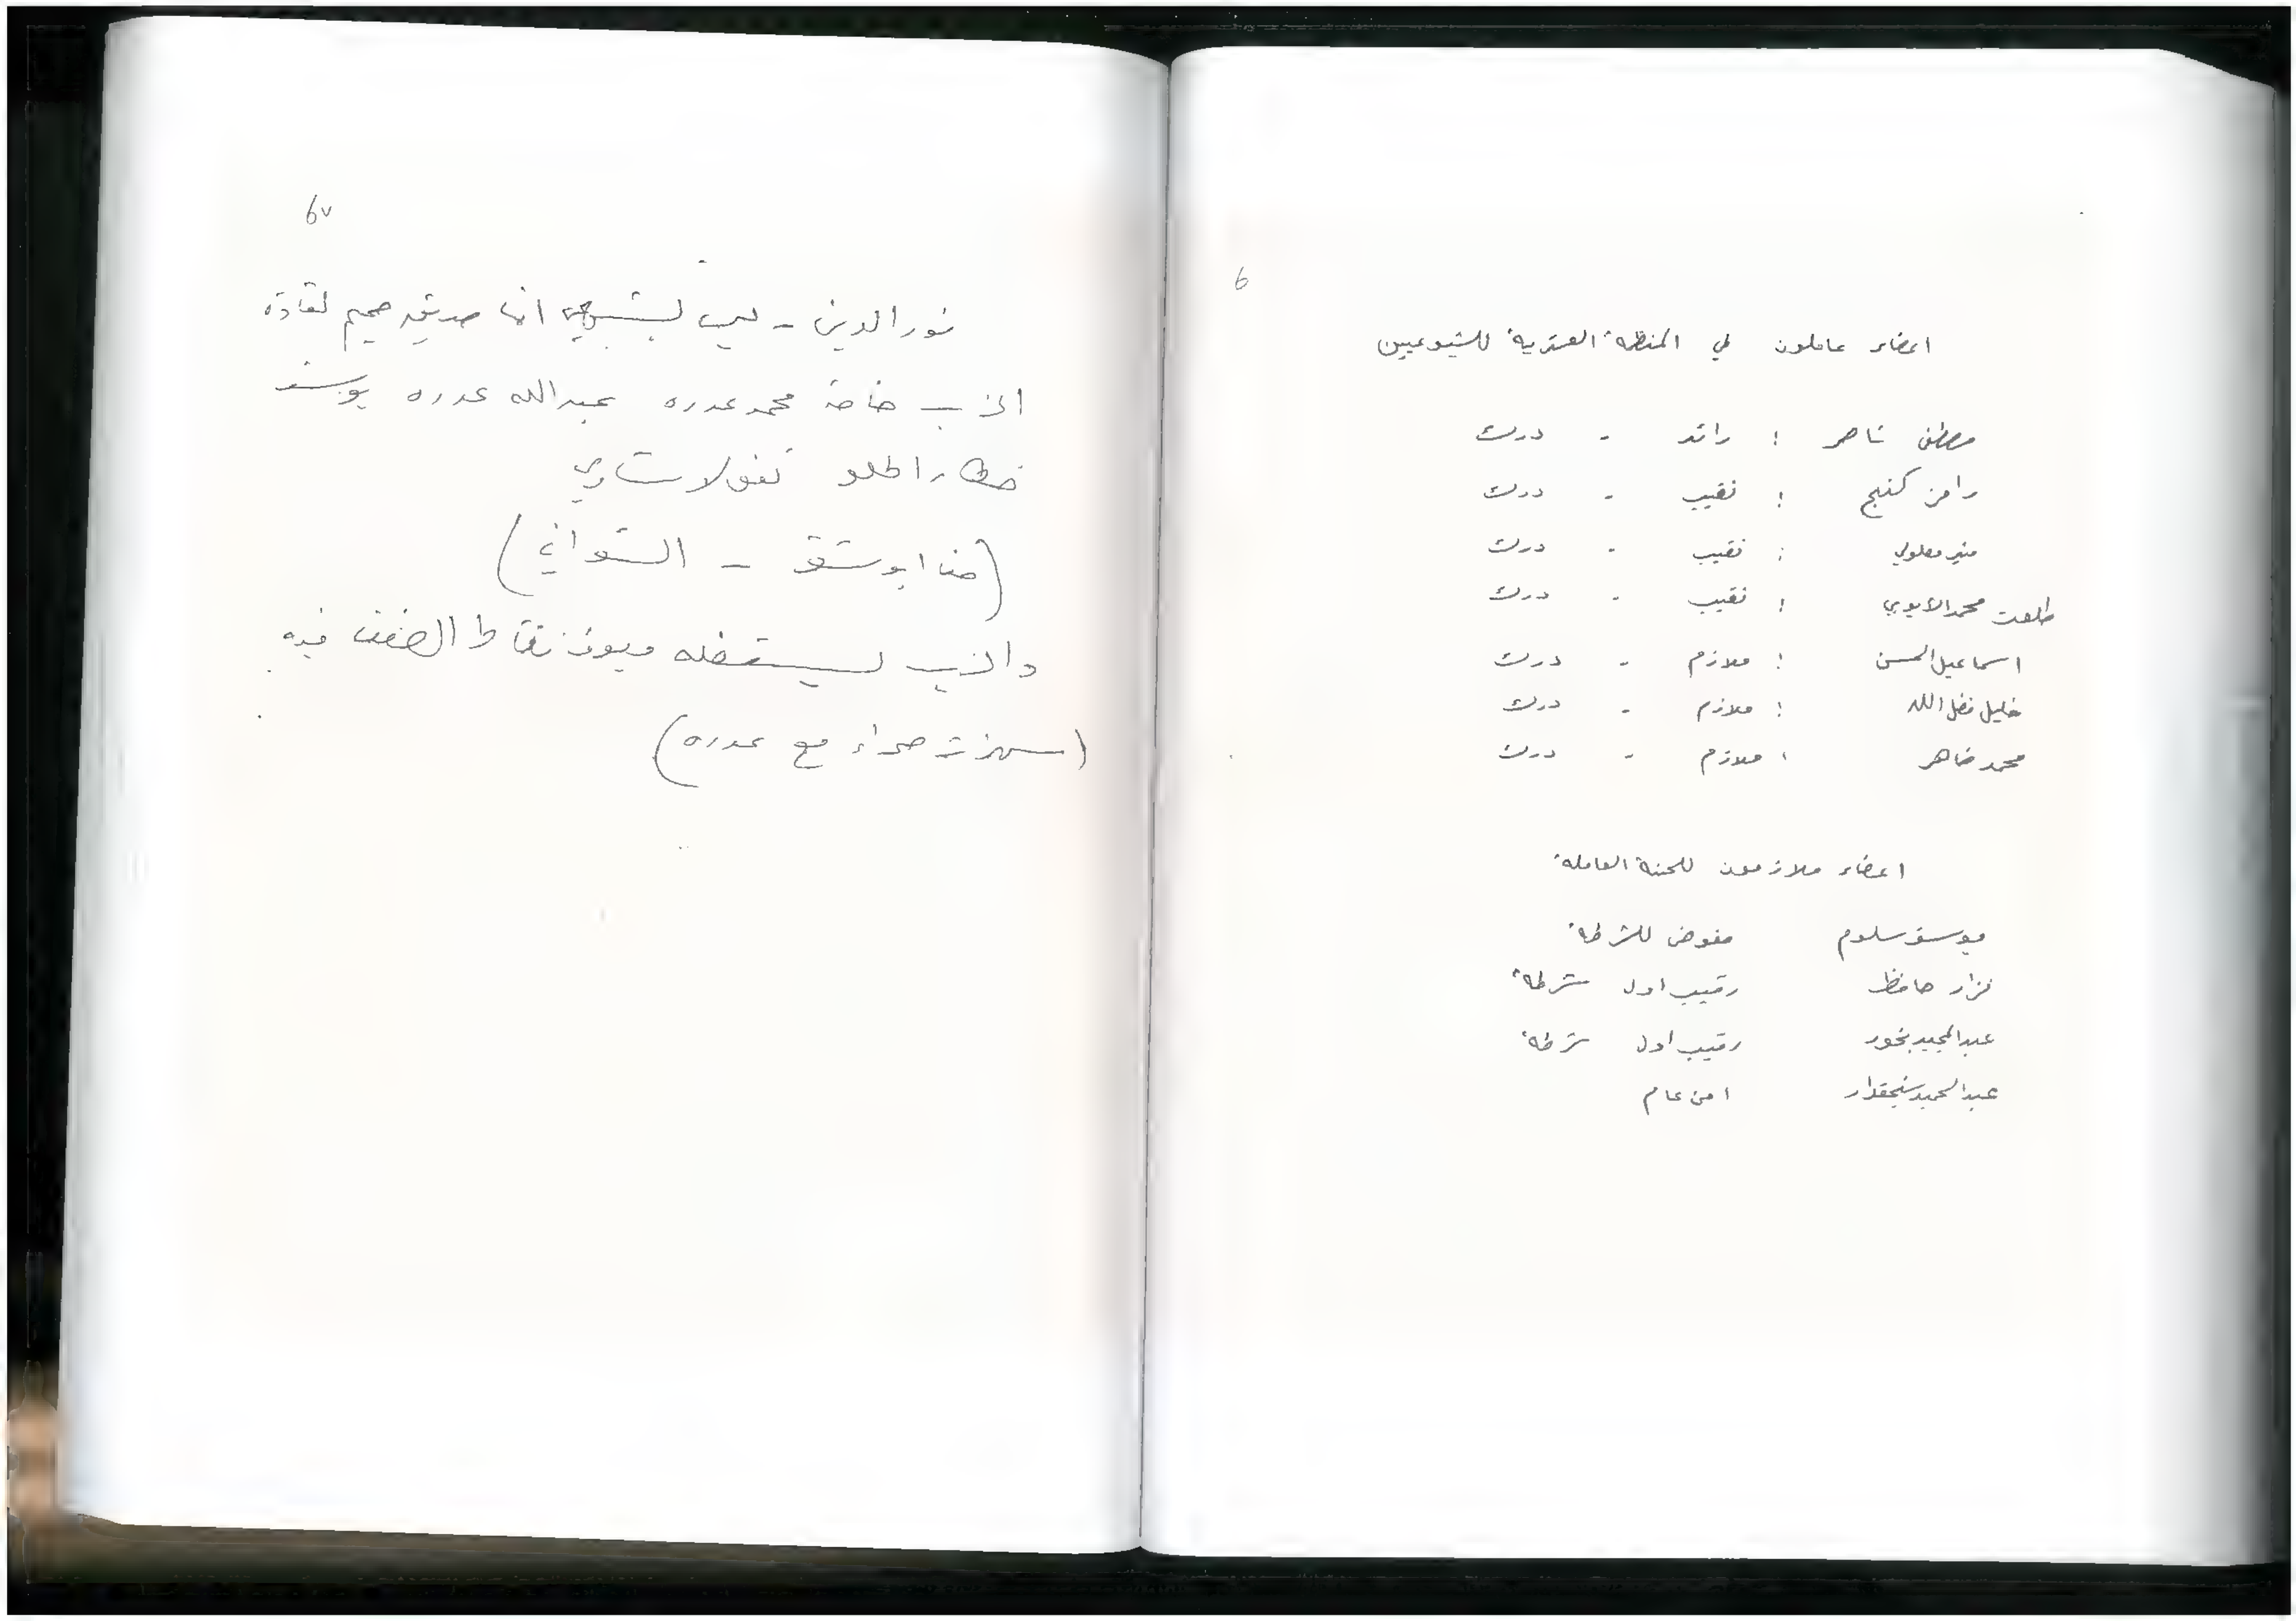 6
اعضاء عاملون في المنظمة العسكرية للشيوعيين
مصطفى ناصر : رائد - درك
رامز كنج : نقيب - درك
منير معلولي : نقيب - درك
طلعت محمد الأيوبي : نقيب - درك
اسماعيل الحسن : ملازم - درك
خليل فضل الله : ملازم - درك
محمد ضاهر : ملازم - درك
اعضاء ملازمون للجنة العاملة
سلوم مفوض للشرطة
نزار حافظ رقيب اول شرطة
عبد المجيد رقيب اول شرطة
عبد الحميد سنجقدار امن عام
6v
نور الدين - ليس انما صديق حميم لقادة
الحزب خاصة محمد عدره عبد الله عدره يوسف
خطار الحلو نقولا شاوي
(حنا ابو شقرا - الشواني)
والحزب ويعرف نقاط الضعف فيه
(مع عدره)